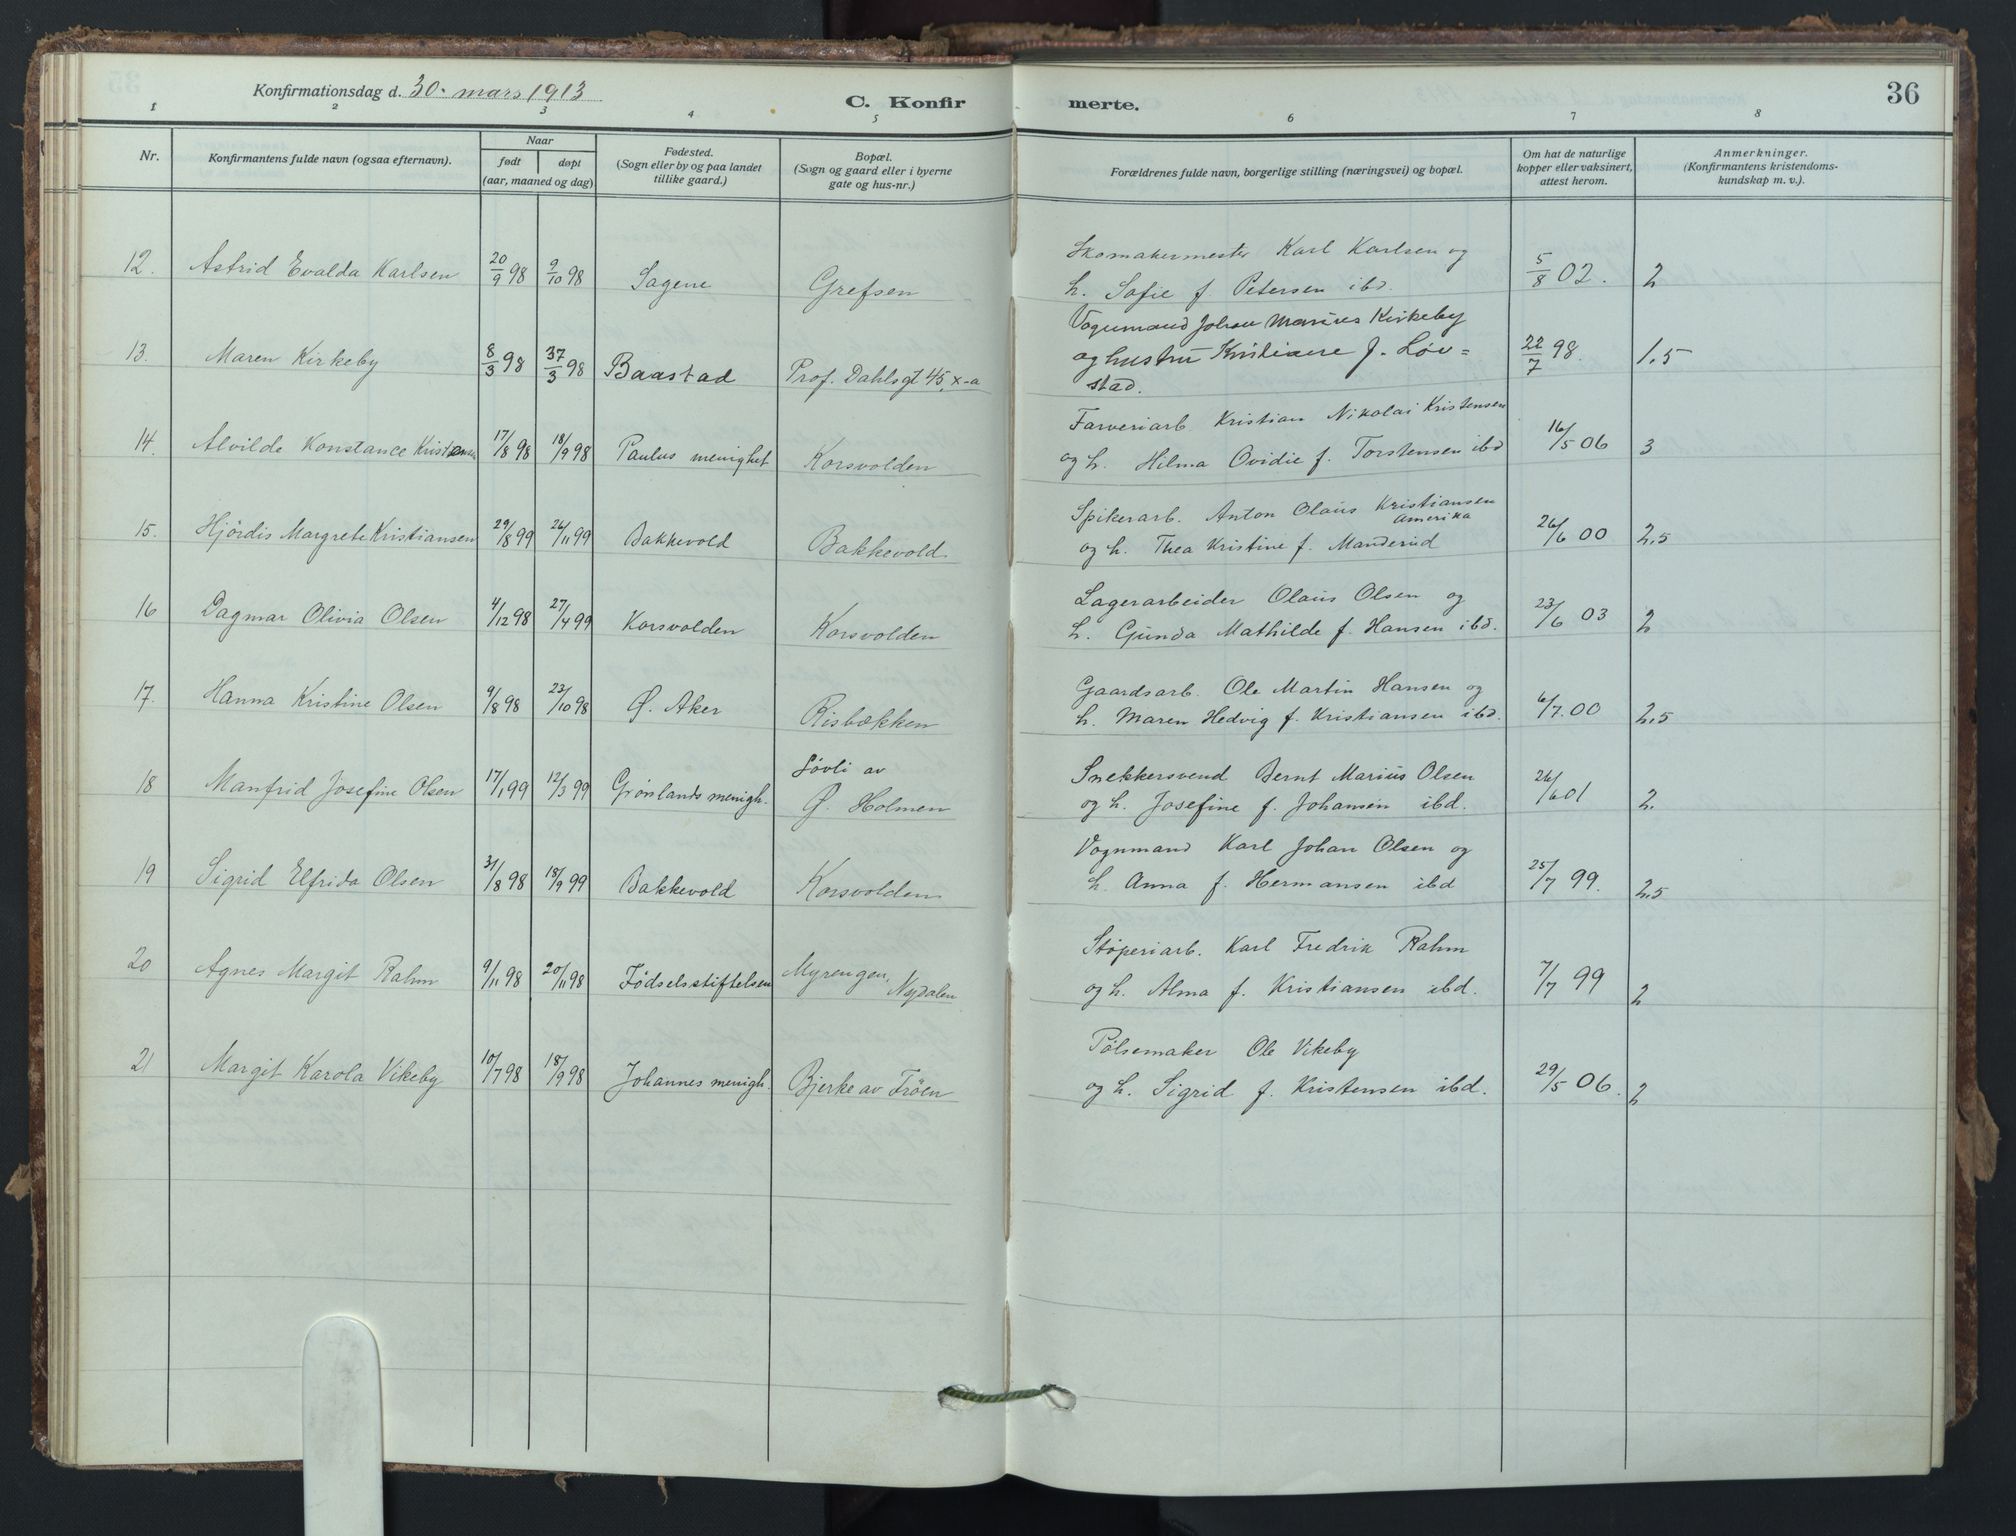 Konfirmationsdag d. 30. mars 1913
C. Konfirmerte.
36
1 2 3 4 5 6 7 8
Nr.
Konfirmantens fulde navn (ogsaa efternavn).
Naar
født
døpt
(aar, maaned og dag)
Fødested.
(Sogn eller by og paa landet
tillike gaard.)
Bopæl.
(Sogn og gaard eller i byerne
gate og hus-nr.)
Forældrenes fulde navn, borgerlige stilling (næringsvei) og bopæl.
Om hat de naturlige
kopper eller vaksinert,
attest herom.
Anmerkninger.
(Konfirmantens kristendoms-
kundskap m. v.).
12. Astrid Evalda Karlsen 20/9 98 9/10 98 Sagene Grefsen
Skomakermester Karl Karlsen og
h. Sofie f. Petersen ibd. 5/8 02. 2
13. Maren Kirkeby 8/3 98 37/3 98 Baastad Prof. Dahlsgt 45, x-a
Vognmand Johan Marius Kirkeby
og hustru Kristiane f. Løv=
stad. 22/7 98. 1.5
14. Alvilde Konstance Kristensen 17/8 98 18/9 98 Paulus menighet Korsvolden
Farveriarb. Kristian Nikolai Kristensen
og h. Hilma Ovidie f. Torstensen ibd 16/5 06 3
15. Hjördis Margrete Kristiansen 29/8 99 26/11 99 Bakkevold Bakkevold.
Spikerarb. Anton Olaus Kristiansen
Amerika
og h. Thea Kristine f. Manderud 26/6 00 2.5
16 Dagmar Olivia Olsen 4/12 98 27/4 99 Korsvolden Korsvolden
Lagerarbeider Olaus Olsen og
h. Gunda Mathilde f. Hansen ibd. 23/6 03 2
17. Hanna Kristine Olsen 9/8 98 23/10 98 Ø. Aker Risbækken
Gaardsarb. Ole Martin Hansen og
h. Maren Hedvig f. Kristiansen ibd. 6/7.00 2.5
18 Manfrid Josefine Olsen 17/1 99 12/3 99 Grønlands menigh. Løvli av
Ø. Holmen
Snekkersvend Bernt Marius Olsen
og h. Josefine f. Johansen ibd. 26/6 01 2.
19 Sigrid Elfrida Olsen 31/8 98 18/9 99 Bakkevold Korsvolden
Vognmand Karl Johan Olsen og
h. Anna f. Hermansen ibd 25/7 99. 2.5
20 Agnes Margit Rahm 9/11 98 20/11 98 Födselsstiftelsen Myrengen,
Nydalen
Støperiarb. Karl Fredrik Rahm
og h. Alma f. Kristiansen ibd. 7/7 99 2
21 Margit Karola Vikeby 10/7 98 18/9 98 Johannes menigh. Bjerke av Fröen
Pølsemaker Ole Vikeby
og h. Sigrid f. Kristensen ibd. 29/5 06. 2